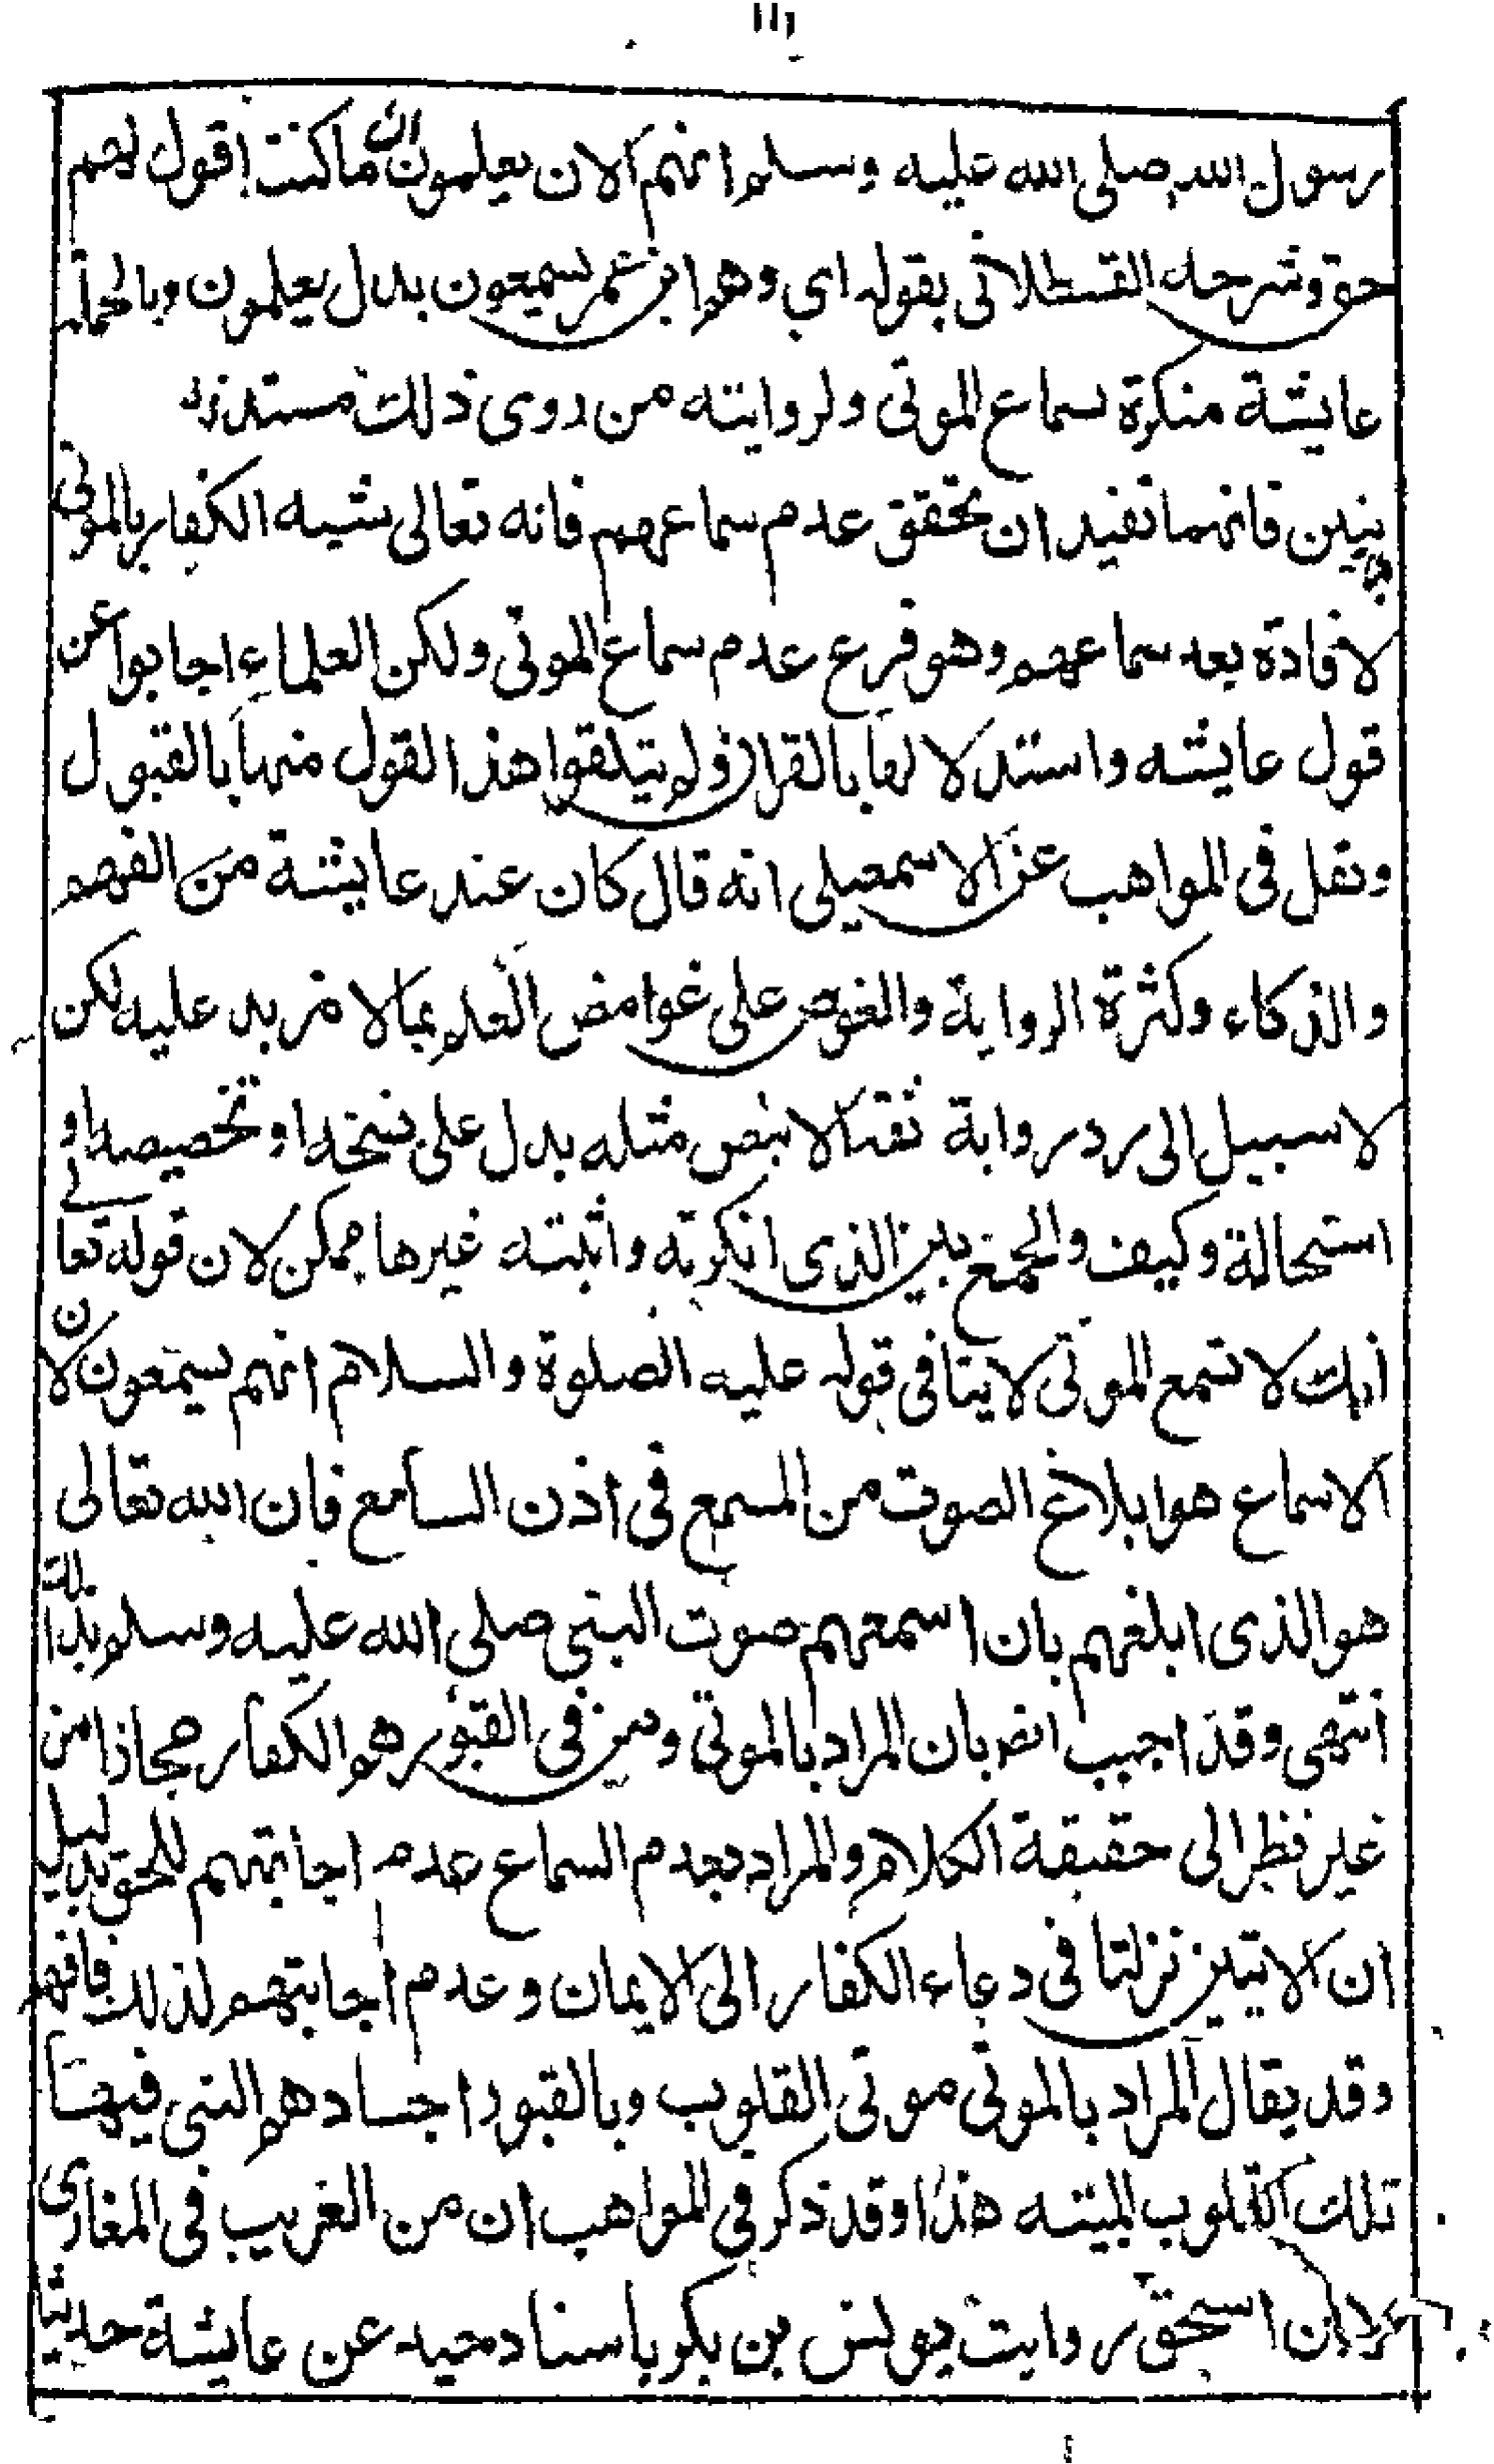 رسول الله صلى الله عليه وسلم انهم الان يعلمون ان ماكنت اقول لهم
حق وشرحه القسطلانى بقوله اي وهم ابن عمر يسمعون بدل يعلمون وبالجملة
عايشة منكرة سماع الموتى ولروايته من روى ذلك مستدلة
فانهما تفيد ان تحقق عدم سماعهم فانه تعالى شبه الكفار بالموتى
لافادة بعد سماعهم وهو فرع عدم سماع الموتى ولكن العلماء اجابوا عن
قول عايشه واستدلالها بالقران ولم يتلقوا هذا القول منها بالقبول
ونقل فى المواهب عن الاسمعيلى انه قال كان عند عايشة من الفهم
والذكاء وكثرة الرواية والغوص على غوامض العلم بمالا مزيد عليه لكن
لا سبيل الى رد رواية ثقة الا بنص مثله يدل على نسخه او تخصيصه او
استحالة وكيف والجمع بين الذى انكرته واثبته غيرها ممكن لان قوله تعالى
انك لا تسمع الموتى لا ينافى قوله عليه الصلوة والسلام انهم يسمعون لان
الاسماع هو ابلاغ الصوت من المسمع فى اذن السامع فان الله تعالى
هو الذى ابلغهم بان اسمعهم صوت النبي صلى الله عليه وسلم بذالك
انتهى وقد اجيب ايضا بان المراد بالموتى ومن فى القبور هو الكفار مجازا من
غير نظر الى حقيقة الكلام والمراد بعدم السماع عدم اجابتهم للحق بدليل
ان الايتين نزلتا فى دعاء الكفار الى الايمان وعدم اجابتهم لذلك فافهم
وقد يقال المراد بالموتى موتى القلوب وبالقبور اجسادهم التى فيها
تلك القلوب الميته هذا وقد ذكر فى المواهب ان من الغريب فى المغازى
لابن اسحق روايت يونس بن بكر باسناد جيد عن عايشة حديثا